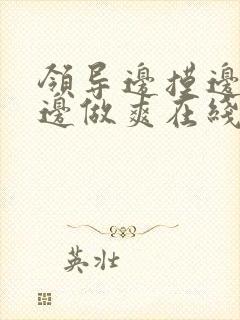 领导邊摸邊
邊做爽在綫
英壮